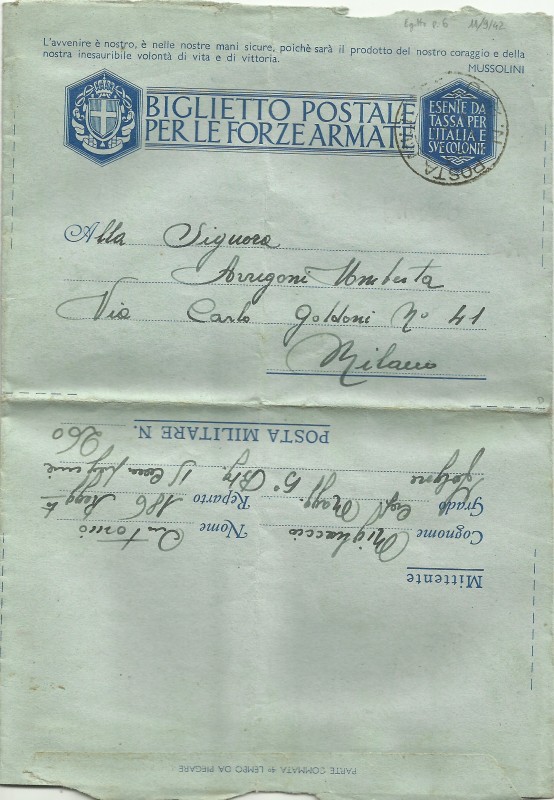 11/9/42
L'avvenire è nostro, è nelle nostre mani sicure, poichè sarà il prodotto del nostro coraggio e della
nostra inesauribile volontà di vita e di vittoria.
MUSSOLINI
BIGLIETTO POSTALE
PER LE FORZE ARMATE
ESENTE DA
TASSA PER
L'ITALIA E
SVE COLONIE
POSTA
Alla Signora
Arrigoni Umberta
Via Carlo Goldoni Nº 41
Milano
Mittente
Cognome Migliaccio Nome Antonio
Grado Magg. Reparto 186 Regg.
Folgore
POSTA MILITARE N. 260
PARTE GOMMATA 4º LEMBO DA PIEGARE